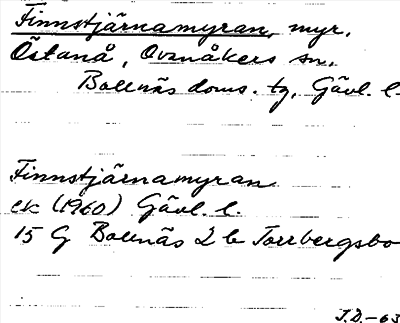 Finnstjärnamyran, myr.
Östanå, Ovanåkers sn.
Bollnäs doms. tg, Gävl. l.
Finnstjärnamyran
ek (1960) Gävl. l.
15 G Bollnäs 2 b Torrbergsbo
J.D.-63